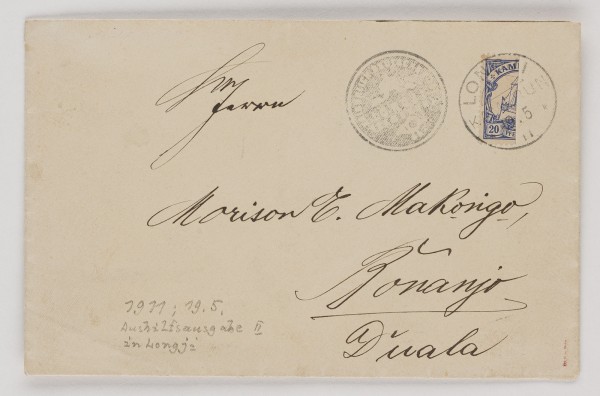 Herrn
Morison E. Makongo,
Bonanjo
Duala
LON I
K UN
5
11
KAM
20
1911; 19.5.
Aushilfsausgabe II
in Longji